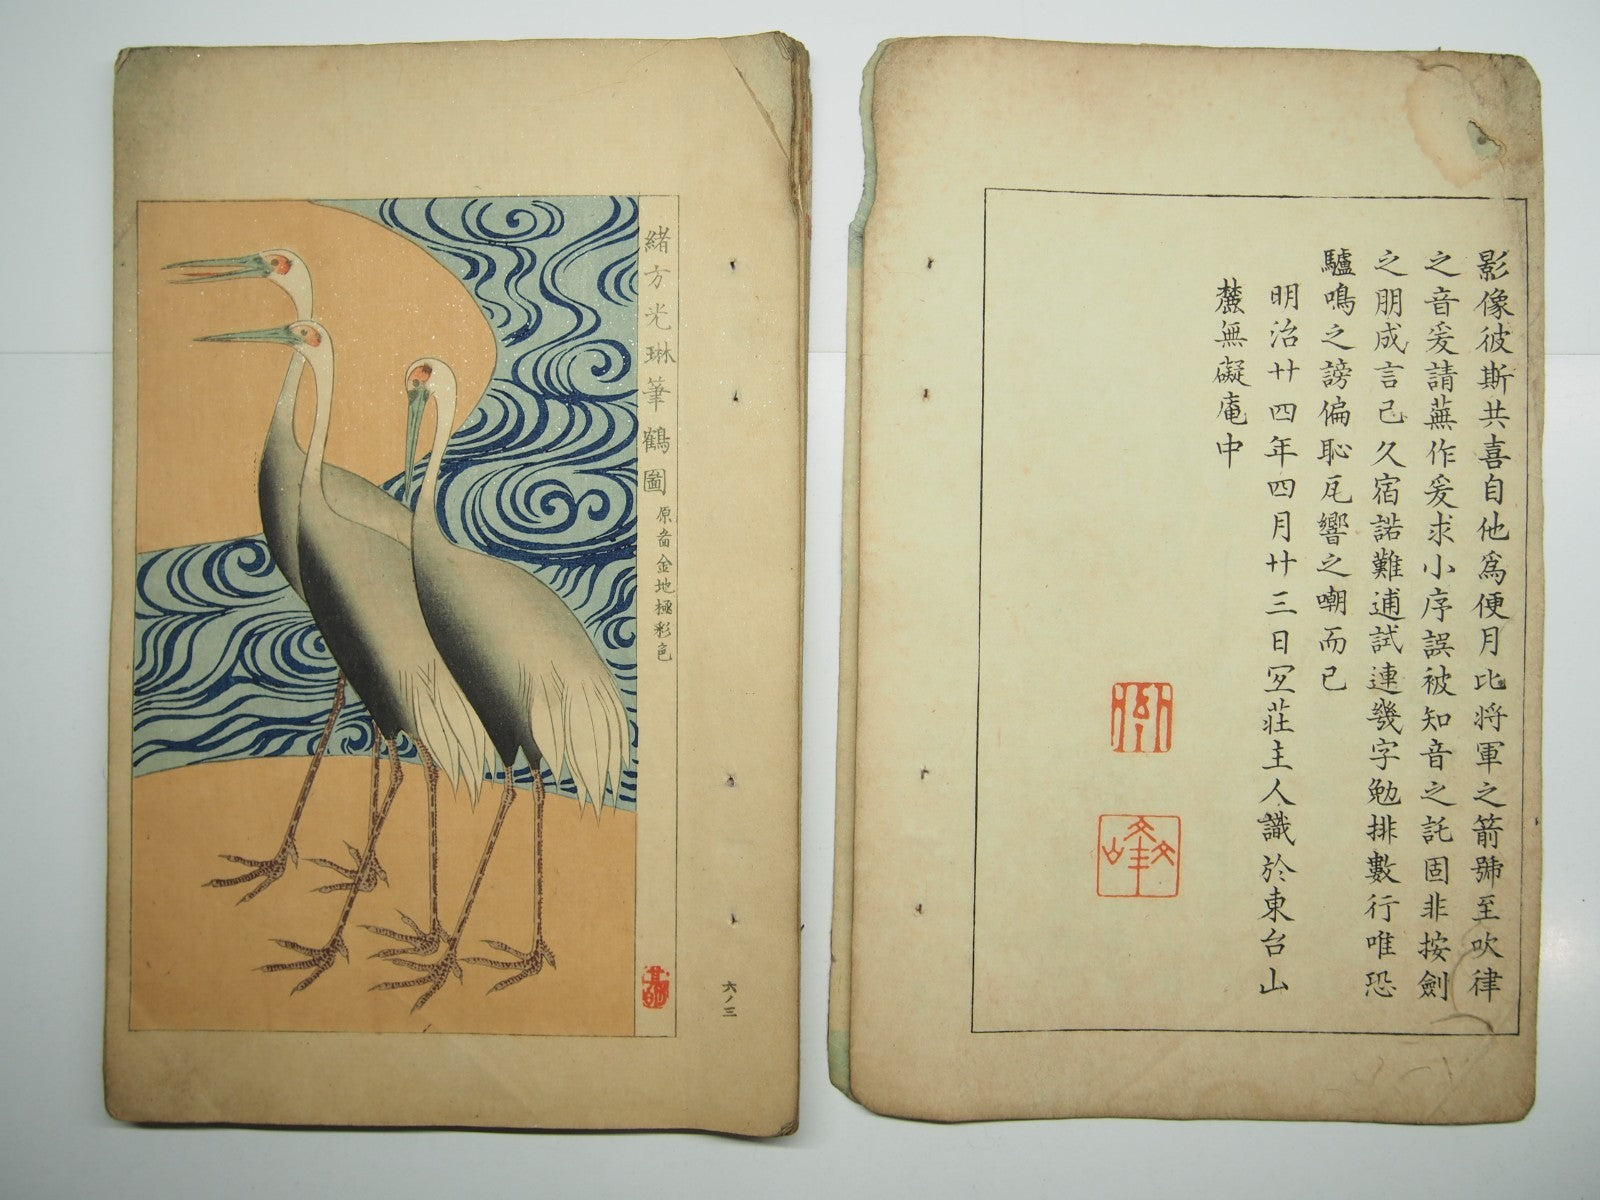 影像彼斯共喜自他爲便月比将軍之箭號至吹律
之音爰請蕪作爰求小序誤被知音之託固非按劍
之朋成言己久宿諾難逋試連幾字勉排數行唯恐
驢鳴之謗偏恥瓦響之嘲而已
明治廿四年四月廿三日 荘主人識於東台山
麓無礙庵中
緒方光琳筆鶴圖
原啚金地極彩色
六ノ三